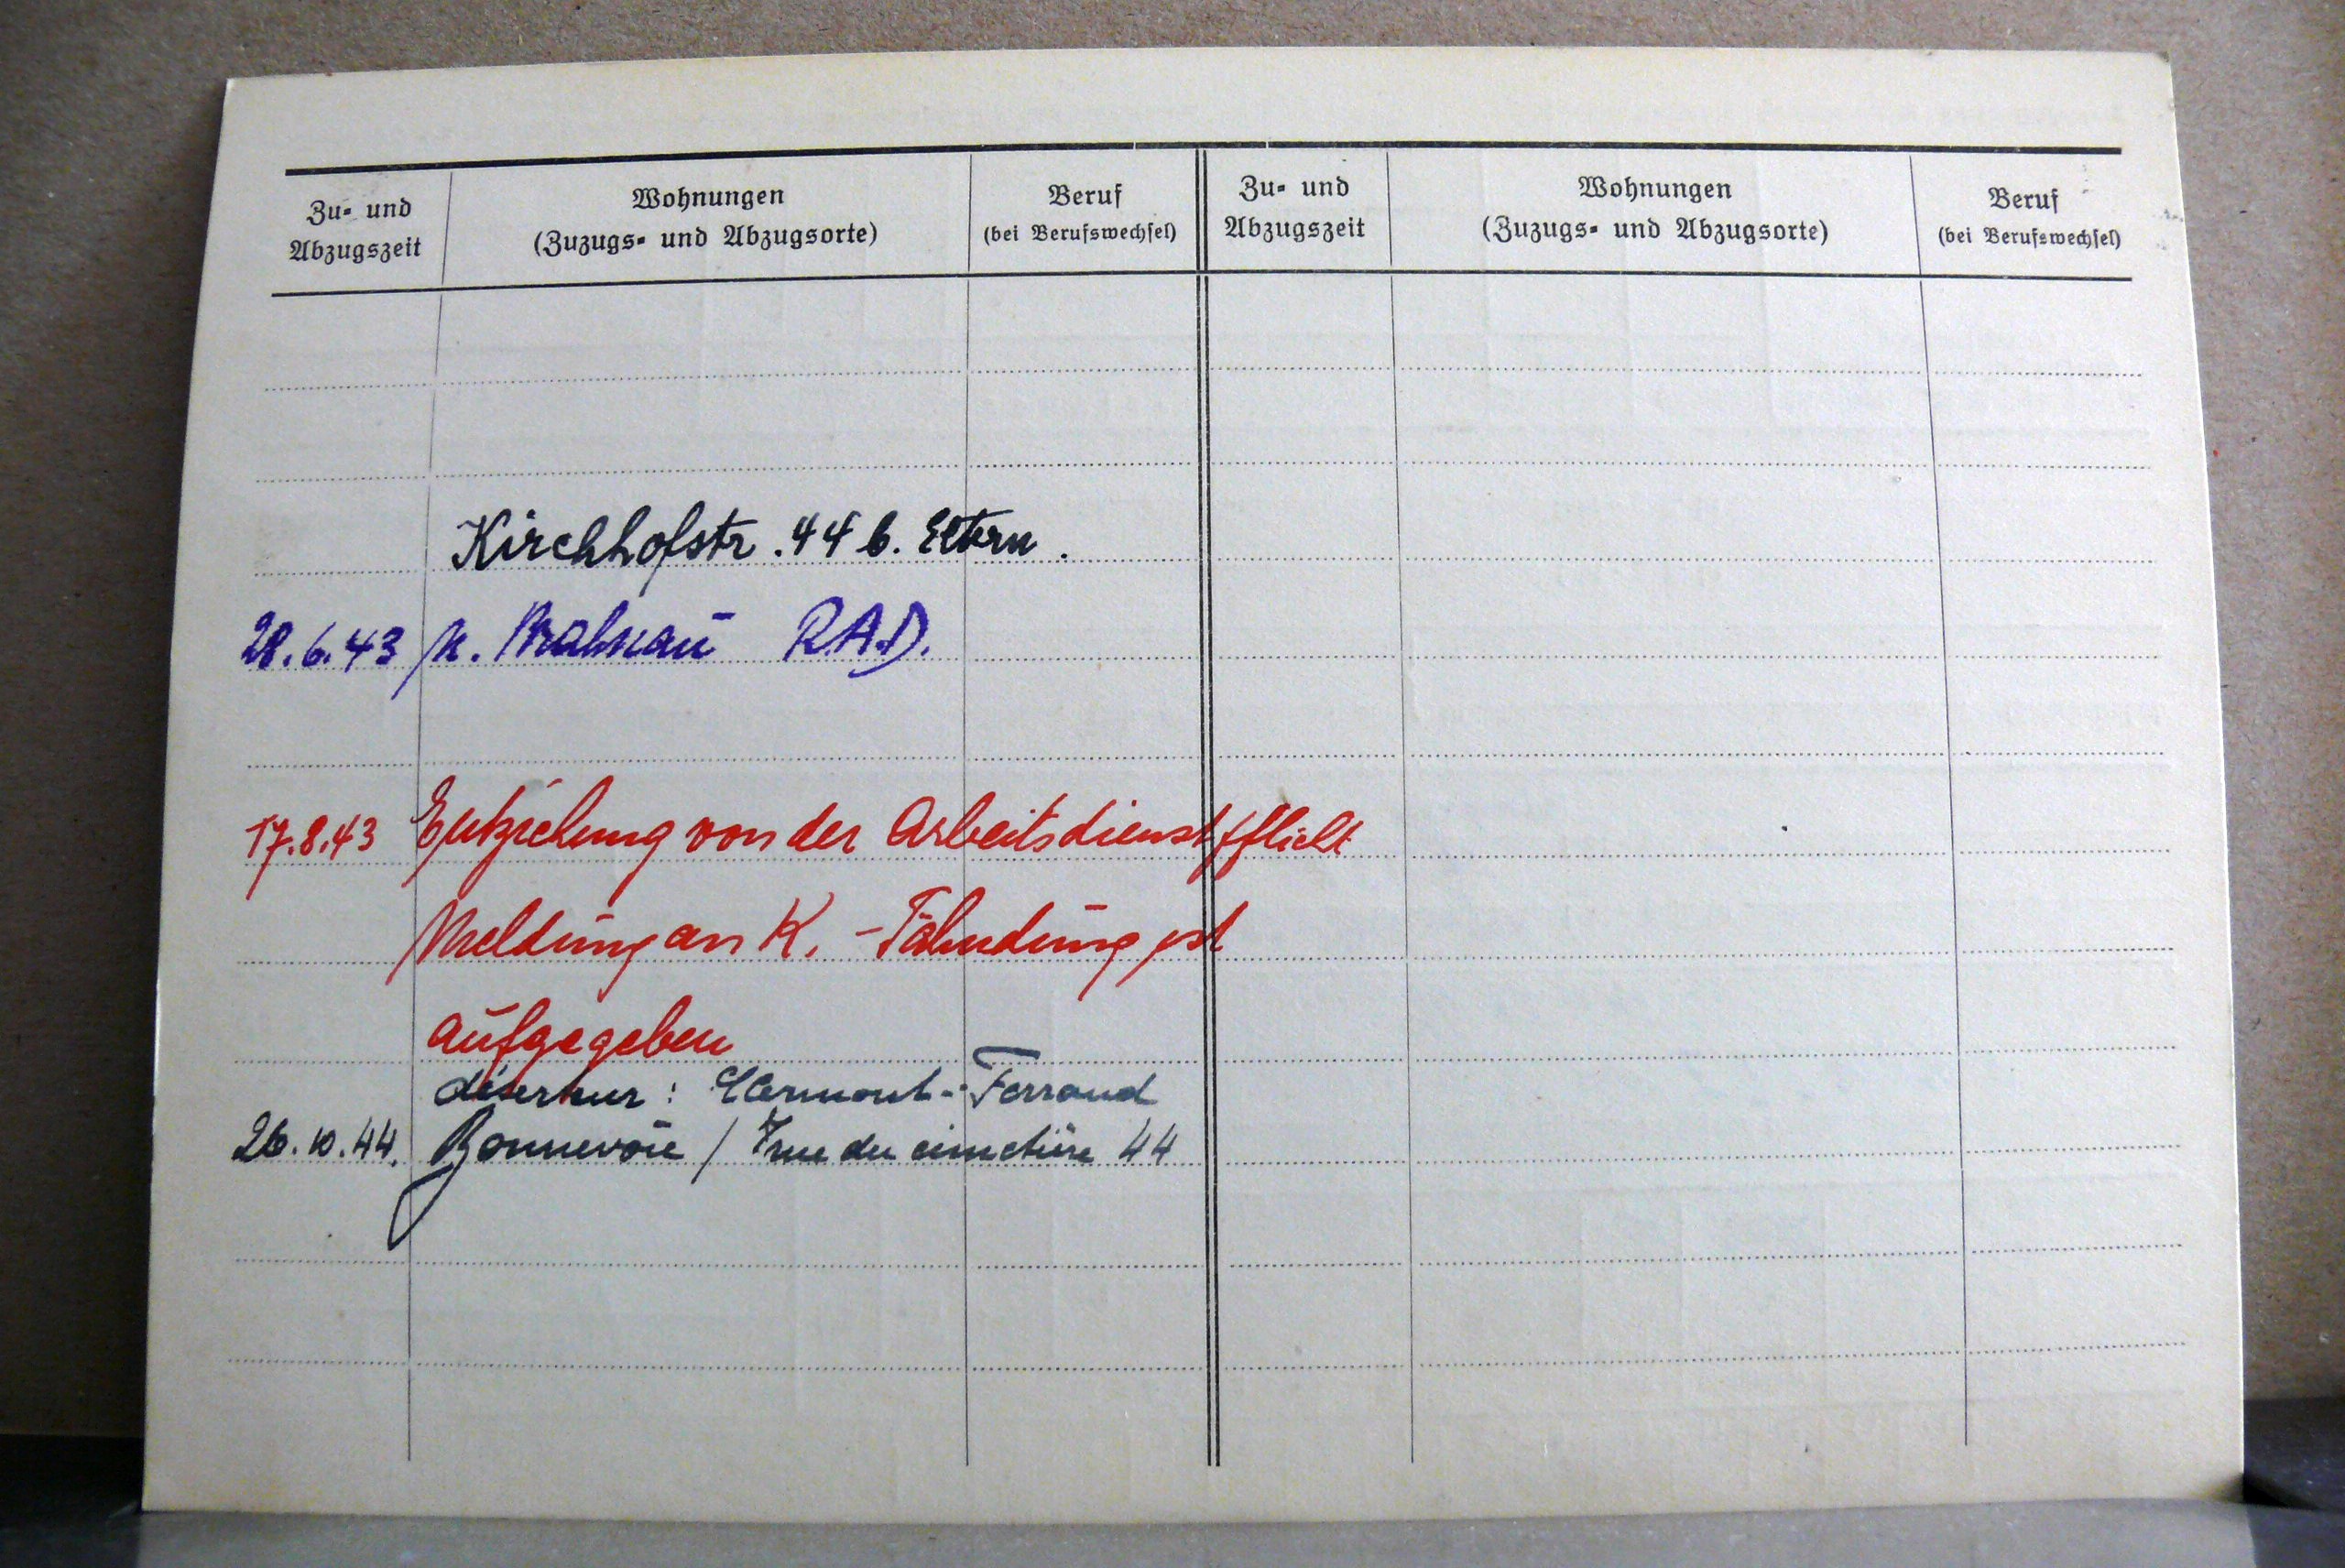 Zu- und Abzugszeit
Wohnungen
(Zuzugs- und Abzugsorte)
Beruf
(bei Berufswechsel)
Zu- und Abzugszeit
Wohnungen
(Zuzugs- und Abzugsorte)
Beruf
(bei Berufswechsel)
Kirchhofstr. 44 b. Eltern.
28.6.43 n. R.A.D.
17.8.43 Entziehung von der Arbeitsdienstpflicht
Meldung an K. - Fahndung ist
aufgegeben
déserteur: Clermont-Ferrand
26.10.44. Bonnevoie / rue du cimetière 44